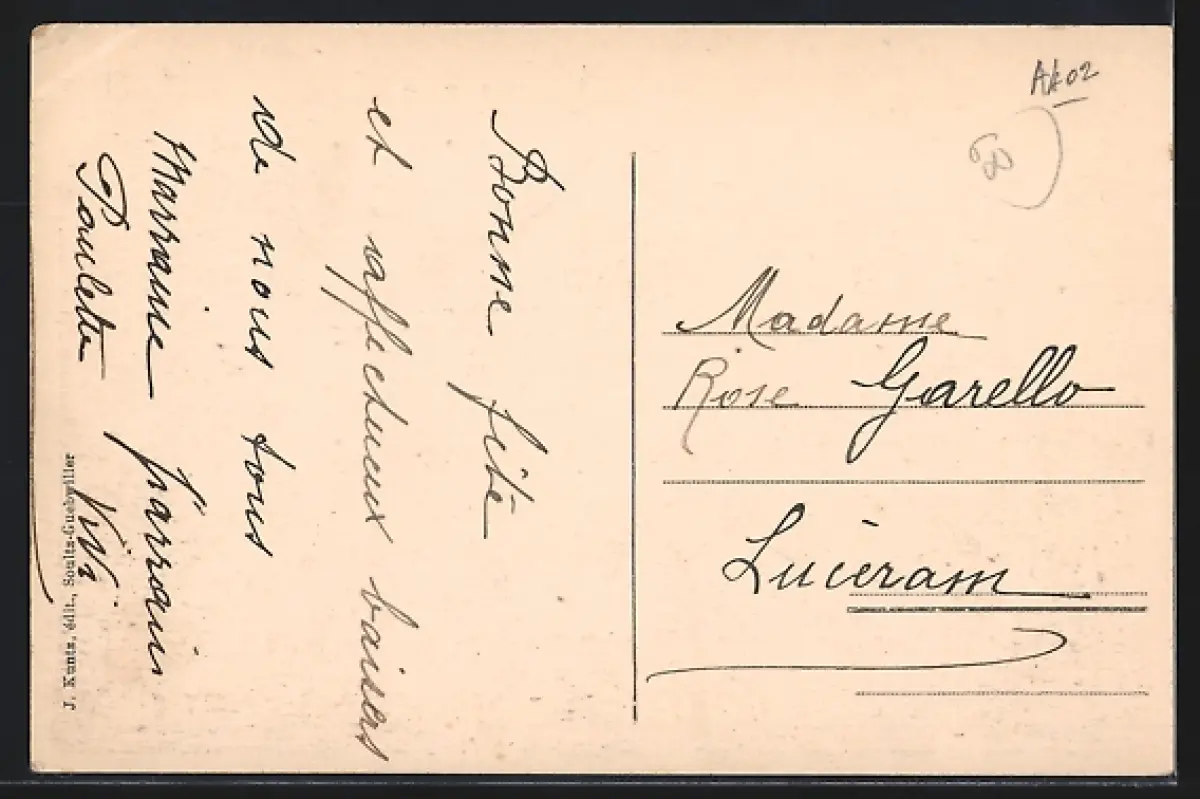 Bonne fête
et affectueux baisers
de nous tous
Marraine parrain
Paulette ViVi
J. Kuntz, édit., Soultz-Guebwiller
Ak02
68
Madame
Rose Garello
Lucéram